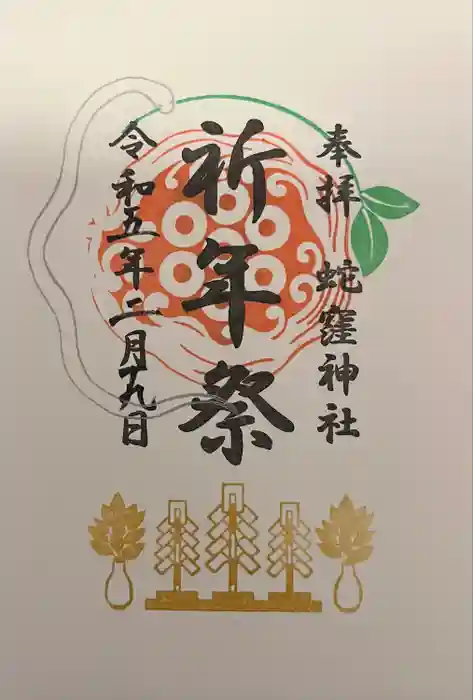 奉拝 蛇窪神社
祈年祭
令和五年二月十九日